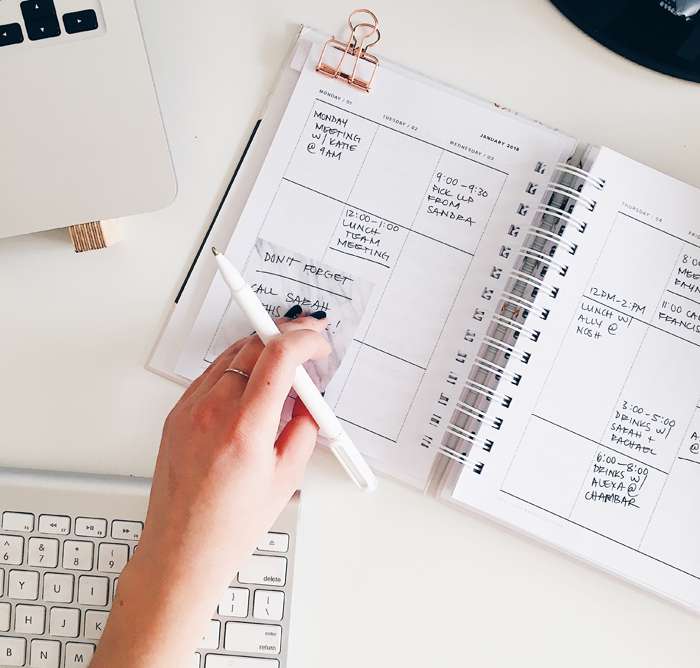 JANUARY 2018
MONDAY / 01
TUESDAY / 02
WEDNESDAY / 03
MONDAY
MEETING
W/ KATIE
@ 9AM
9:00-9:30
PICK UP
FROM
SANDRA
12:00-1:00
LUNCH
TEAM
MEETING
DON'T FORGET
CALL SARAH
THURSDAY / 04
12PM-2PM
LUNCH W/
ALLY @
NOSH
3:00-5:00
DRINKS W/
SARAH +
RACHAEL
6:00-8:00
DRINKS W/
ALEXA @
CHAMBAR
11:00
delete
return
6
7
8
9
Y
U
I
H
J
K
B
N
M